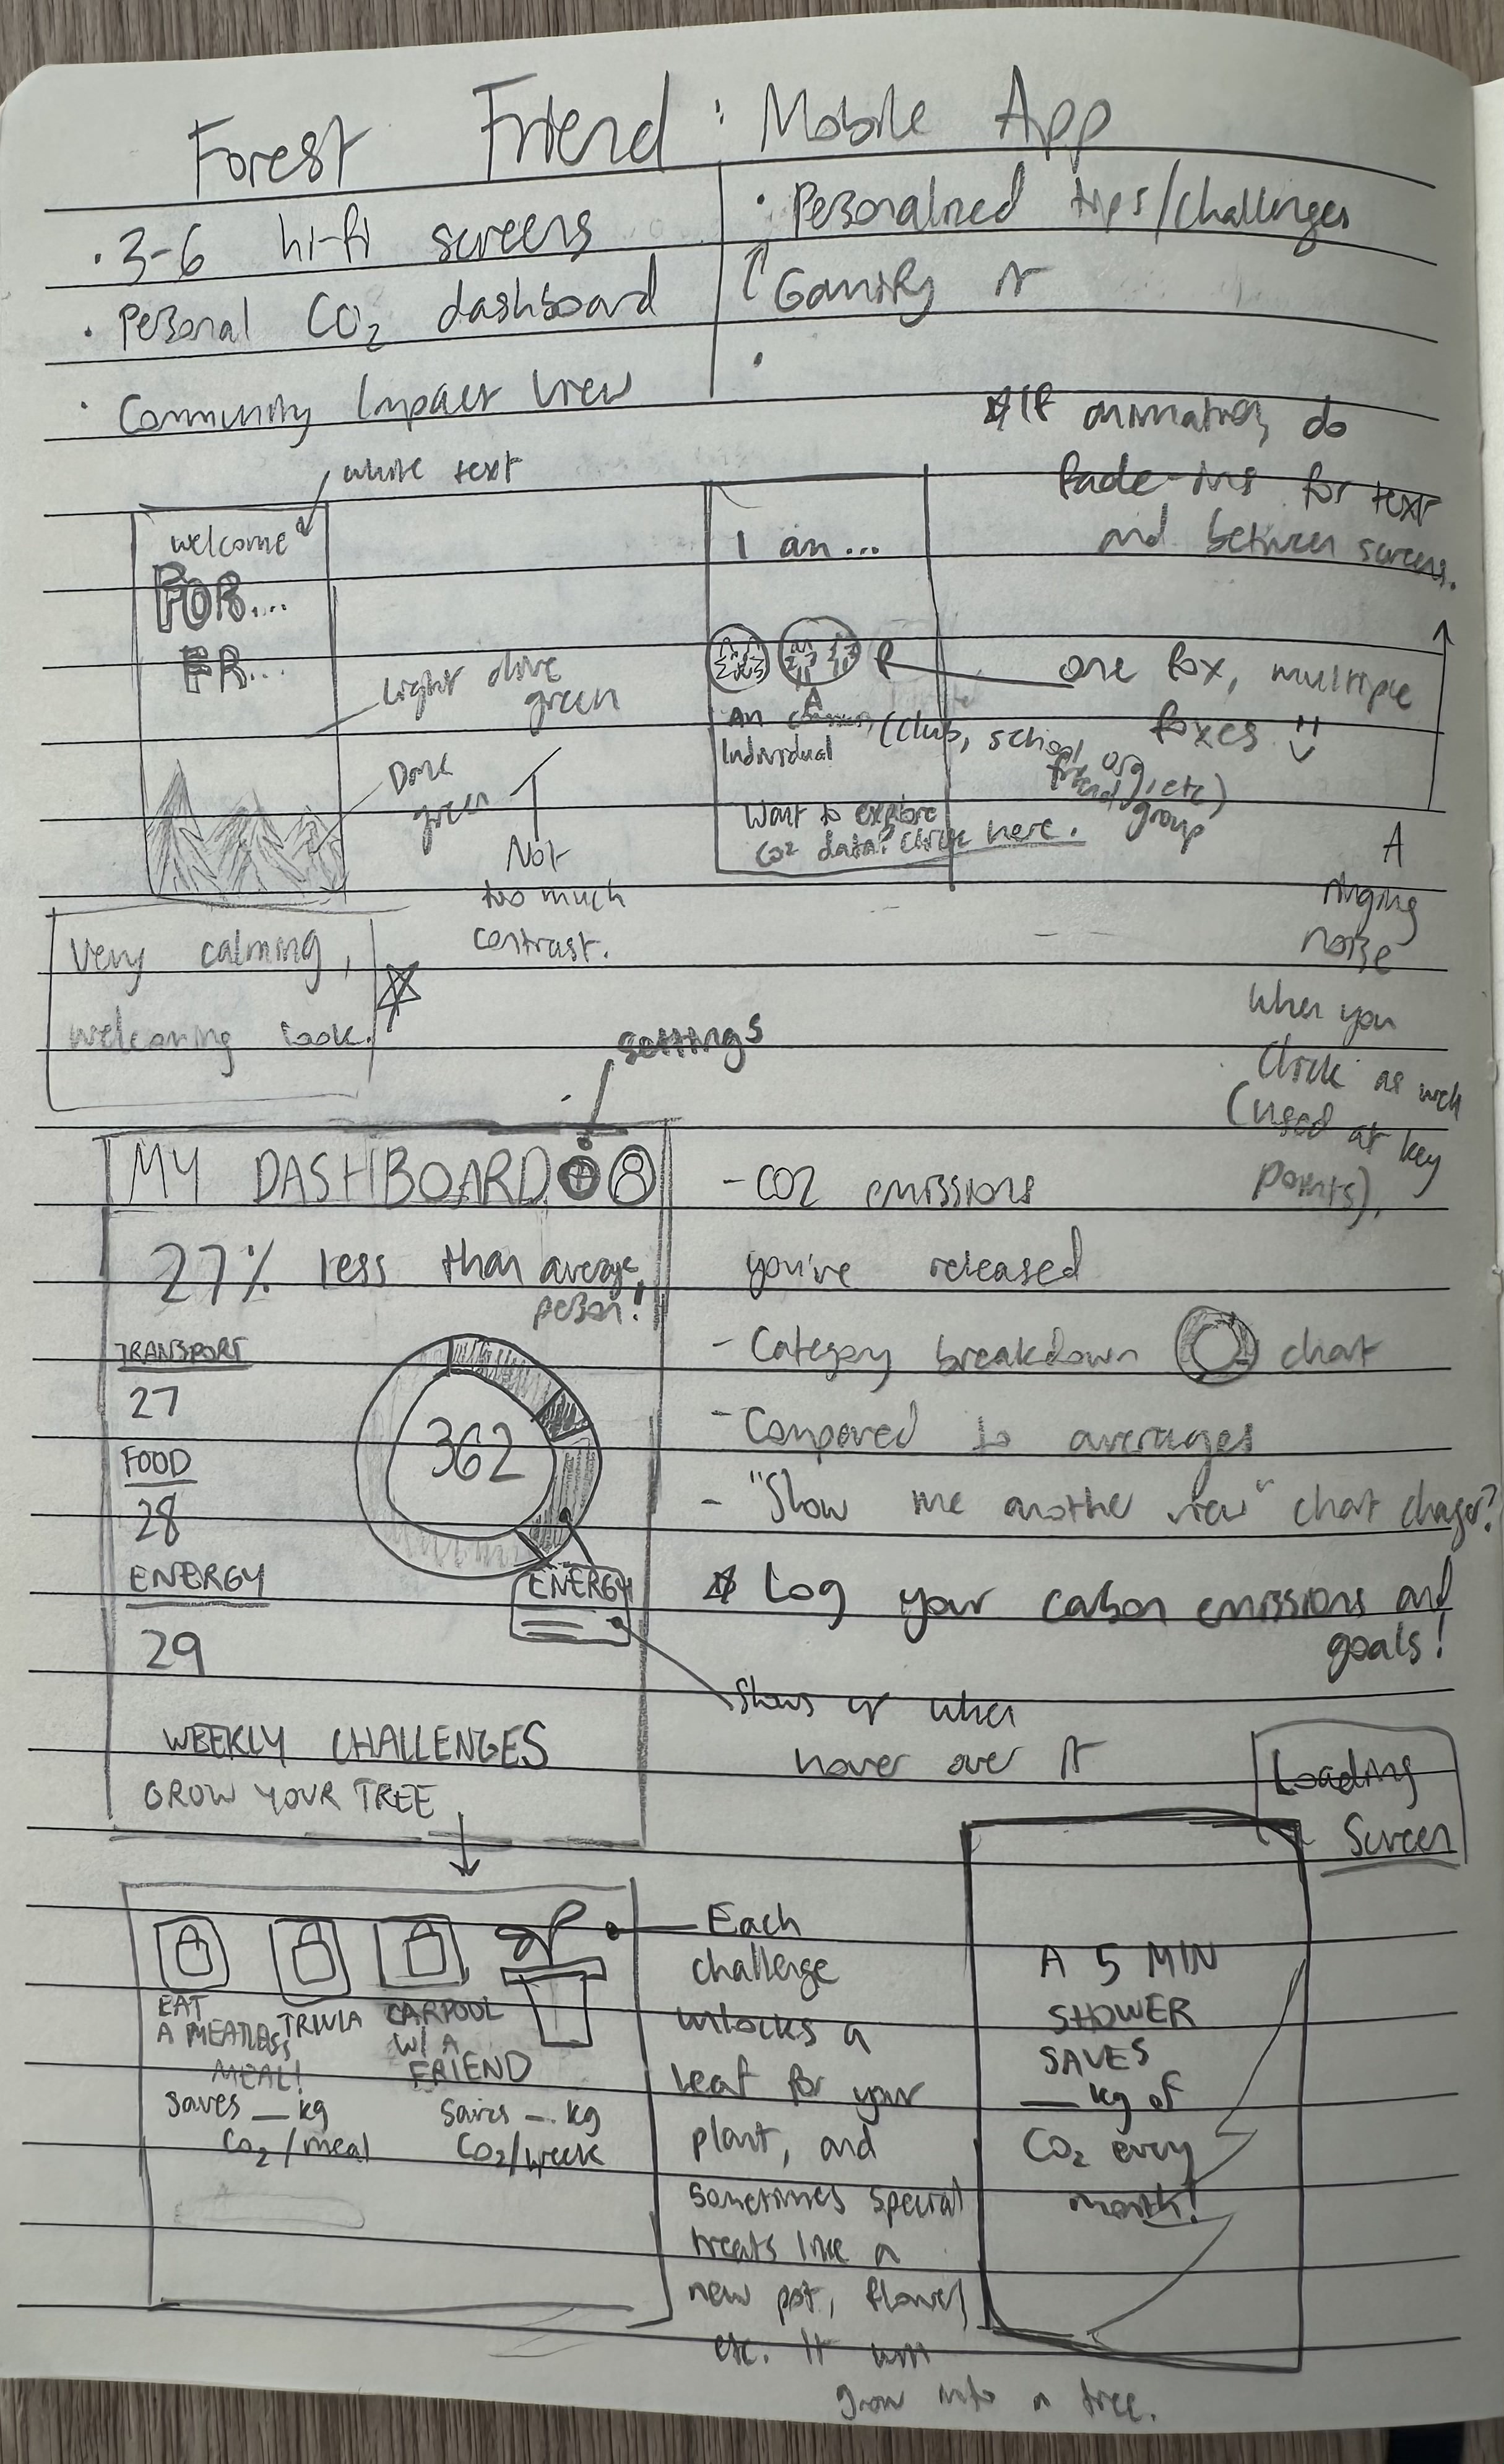 Forest Friend: Mobile App
· 3-6 hi-fi screens
· Personal CO2 dashboard
· Community Impact View
· Personalized tips/challenges
↑ Gamify it
·
☆ If animation, do
fade-ins for text
and between screens.
white text
welcome
FOR...
FR...
Light olive
green
Dark
green
Not
too much
contrast.
I am...
An
Individual
A
(club, school, org, etc)
friend group
one fox, multiple
foxes :)
Want to explore
CO2 data? Click here.
A
ringing
noise
when you
click as well
(used at key
points).
Very calming,
welcoming look.
settings
MY DASHBOARD
27% less than average
person!
TRANSPORT
27
FOOD
28
ENERGY
29
362
ENERGY
WEEKLY CHALLENGES
GROW YOUR TREE
- CO2 emissions
you've released
- Category breakdown chart
- Compared to averages
- "Show me another view" chart changer?
☆ Log your carbon emissions and
goals!
Shows up when
hover over it
Loading
Screen
EAT
A MEATLESS
MEAL!
Saves _ kg
CO2/meal
TRIVIA
CARPOOL
W/ A
FRIEND
Saves _ kg
CO2/week
Each
challenge
unlocks a
leaf for your
plant, and
sometimes special
treats like a
new pot, flower,
etc. It will
grow into a tree.
A 5 MIN
SHOWER
SAVES
_ kg of
CO2 every
month!